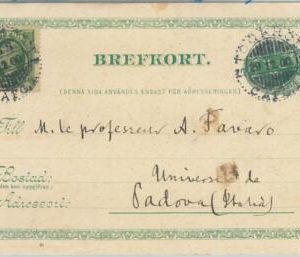 BREFKORT.
(DENNA SIDA ANVÄNDES ENDAST FÖR ADRESSERINGEN.)
Till M. le professeur A. Favaro
Bostad:
(då den kan uppgifvas)
Université de
Adressort: Padova (Italie)